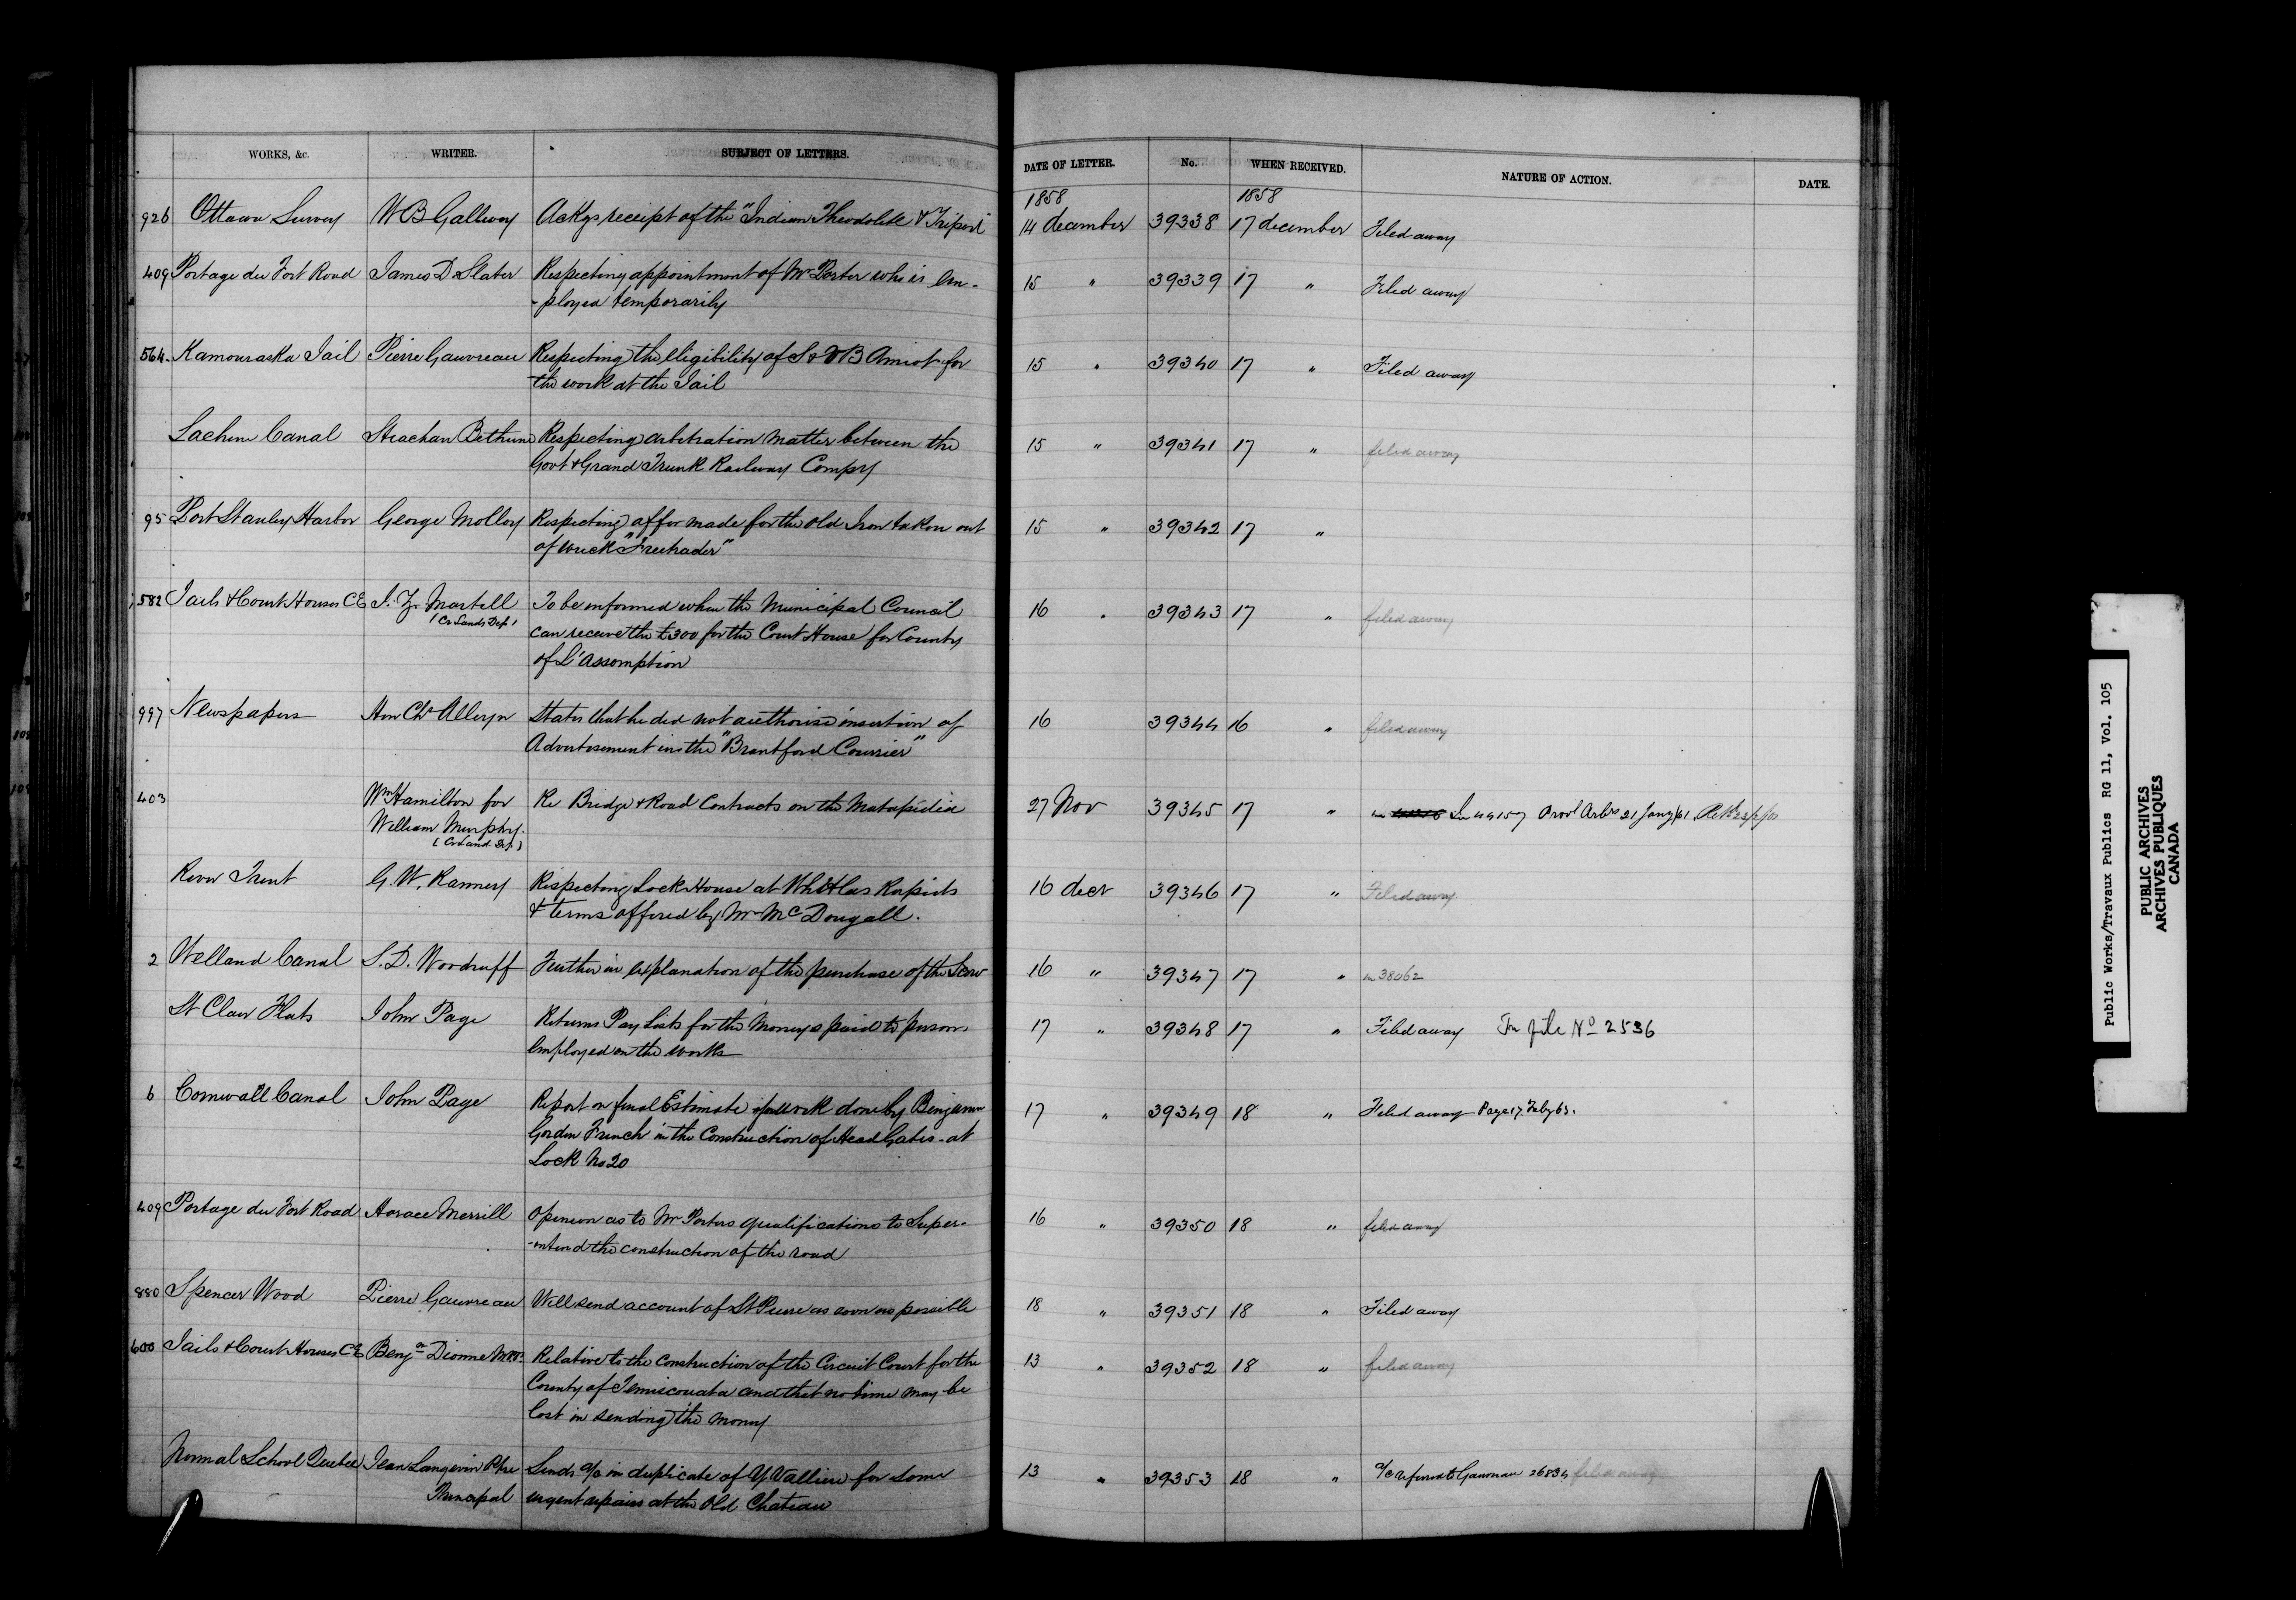 WORKS, &c. WRITER. SUBJECT OF LETTERS. DATE OF LETTER. No. WHEN RECEIVED. NATURE OF ACTION. DATE.
1858 1858
926 Ottawa Survey W B Gallwey Ackgs receipt of the "Indian Theodolite & Tripod" 14 december 39338 17 december Filed away
409 Portage du Fort Road James D Slater Respecting appointment of Mr Porter who is em- 15 " 39339 17 " Filed away
-ployed temporarily
564. Kamouraska Jail Pierre Gauvreau Respecting the eligibility of S & B Amiot for 15 " 39340 17 " Filed away
the work at the Jail
Lachine Canal Strachan Bethune Respecting arbitration matter between the 15 " 39341 17 " filed away
Govt & Grand Trunk Railway Compy
95 Port Stanley Harbor George Molloy Respecting offer made for the old Iron taken out 15 " 39342 17 "
of wreck "Freetrader"
582 Jails & Court Houses C E J. Z. Martell To be informed when the Municipal Council 16 " 39343 17 " filed away
(Cr Lands Dep)
can receive the £300 for the Court House for County
of L'Assomption
997 Newspapers Hon Chs Alleyn States that he did not authorise insertion of 16 39344 16 " filed away
Advertisement in the "Brantford Courrier"
403 Wm Hamilton for Re Bridge & Road Contracts on the Matapédia 27 Nov 39345 17 " In 44157 Provl Arbrs 21 Jany/61
William Murphy.
(Cr Land Dep)
River Trent G. W. Ranney Respecting Lock House at Whitlas Rapids 16 decr 39346 17 " Filed away
& terms offered by Mr McDougall.
2 Welland Canal S. D. Woodruff Further in explanation of the purchase of the Scow 16 " 39347 17 " in 38062
St Clair Flats John Page Returns Pay Lists for the Moneys paid to persons 17 " 39348 17 " Filed away In file No 2536
employed on the works
6 Cornwall Canal John Page Report on final Estimate of work done by Benjamin 17 " 39349 18 " Filed away Page 17 Feby 63.
Gordon French in the Construction of Head Gates at
Lock No 20
409 Portage du Fort Road Horace Merrill Opinion as to Mr Porters qualifications to Super- 16 " 39350 18 " filed away
-intend the construction of the road
880 Spencer Wood Pierre Gauvreau Will send account of St Pierre as soon as possible 18 " 39351 18 " Filed away
600 Jails & Court Houses C E Benjn Dionne M.P.P. Relative to the construction of the Circuit Court for the 13 " 39352 18 " filed away
County of Temiscouata and that no time may be
lost in sending the money
Normal School Quebec Jean Langevin Ptre Sends a/c in duplicate of Y. Valliere for some 13 " 39353 18 " a/c referred to Gauvreau 26834 filed away
Principal urgent repairs at the Old Chateau
Public Works/Travaux Publics RG 11, Vol. 105
PUBLIC ARCHIVES
ARCHIVES PUBLIQUES
CANADA